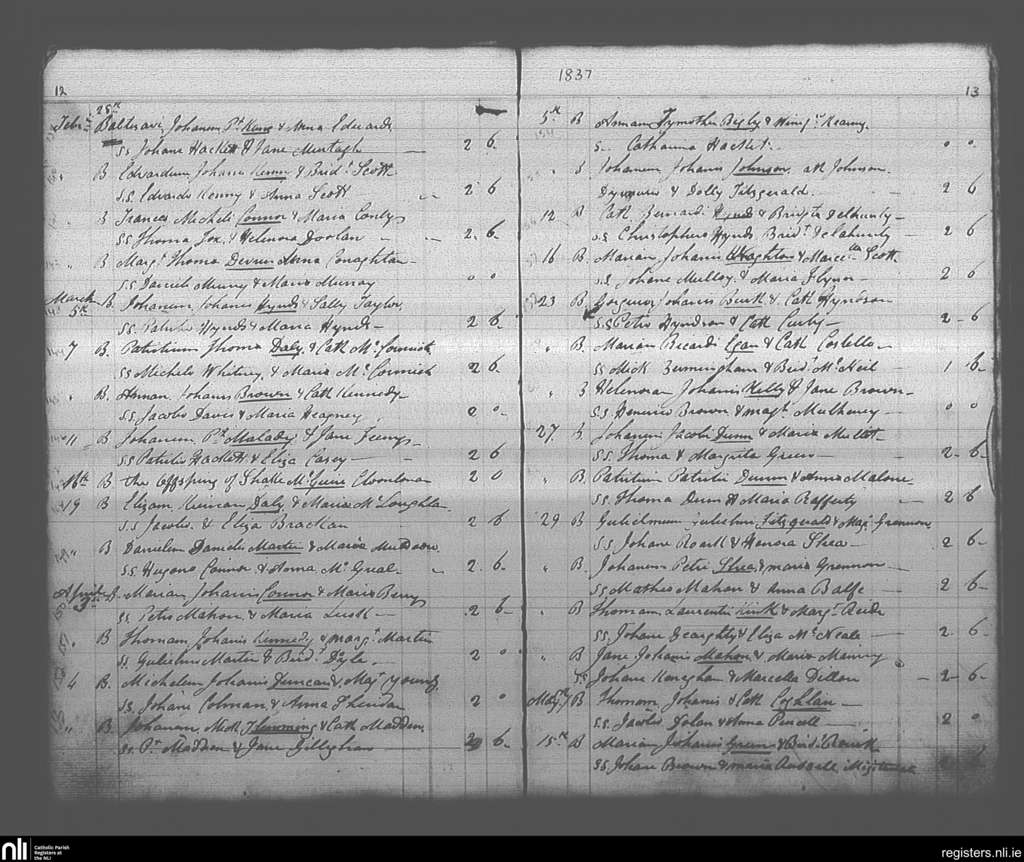 12
Feb. 28th Baltisavi Johanem Pt. Kane & Anna Edwards
SS Johane Hackett & Jane Murtagh 2 6
" B Edwardum Johanis Kenny & Brid. Scott
S.S. Edwardo Kenny & Anna Scott 2 6
Frances Micheli Connor & Maria Conly
SS Thoma Fox & Helenora Doolan 2 6
" B Margt. Thoma & Anna Conaghton
SS Daniele Murry & Maria Murray 0 0
March 5th B Johanem Johanis Hynds & Sally Taylor
SS Patritio Hynds & Maria Hynds 2 6
7 B. Patritium Thoma Daly & Cath McCormick
SS Michele Whitney & Maria McCormick 2 6
" B. Annam Johanis Brown & Cath Kennedy
S.S. Jacobo Davis & Maria Heagney 2 0
11 B Johanem Pt. Malady & Jane
SS Patritio Hackett & Eliza Casey 2 6
16th B the Offspring of McGuire 2 0
19 B Elizam Kieran Daly & Maria McLoughla
S.S. Jacobo & Eliza Brackan 2 6
" B Danielem Danielis Martin & Maria Muldoon
S.S. Hugone Connor & Anna Mc Greal 2 6
April 3d B. Mariam Johanis Connor & Maria Berry
SS. Petro Mahon & Maria 2 6
B Thomam Johanis Kennedy & Margt. Martin
SS. Gulielmo Martin & Brid. Doyle 2 0
4 B. Michelem Johanis Duncan & Mat. Young
SS. Johane Colman & Anna Sheridan 2 0
" B Johanem Mick Flemming & Cath Madden
SS. Pt. Madden & Jane Gillghan 2 6
1837
13
5th B Annam Tymothei Begly & Winif. Kearny
S. Catharina Hacket 0 0
" Johanem Johanis Johnson, Johnson
& Dolly Fitzgerald 2 6
12 B Cath Bernardi Hynds & Brigita Delhunty
S.S Christophero Hynds Brid. Delahunty 2 6
16 B Mariam Johanis & Marcella Scott
SS Johane Mulloy & Maria Flynn 2 6
23 B Johanis Burk & Cath Hyndson
SS Petro Hyndson & Cath Curly 2 6
" B. Mariam Ricardi Egan & Cath Costello
SS Mick Bermingham & Brid. McNeil 1 6
" B Helenora Johanis Kelly & Jane Brown
S.S. Henrico Brown & Magt. Mulheney 0 0
27 Johanem Jacobi Dunn & Maria Mullett
SS. Thoma & Margrita Green 2 6
" B. Patritium Patritii Dunn & Anna Malone
SS. Thoma Dunn & Maria Rafferty 2 6
29 B Gulielmum Gulielmi Fitzgerald & Mat. Grennon
S.S. Johane Roark & Honora Shea 2 6
" B. Johanem Petri Shea & Maria Grennon
SS Matheo Mahon & Anna Balfe 2 6
" B Thomam Laurentii Kirk & Margt. Reide
SS. Johane Gearghty & Eliza McNeale 2 6
" B Jane Johanis Mahon & Maria Mainny
SS Johane Keneghan & Marcella Dillon 2 6
May 7 B Thomam Johanis & Cath Coghlan
S.S. Jacobo Dolan & Anna Purcell 2 0
15th B Mariam Johanis Green & Brid. Rourk
SS Johane Brown & Maria Russell
nli Catholic Parish Registers at the NLI
registers.nli.ie